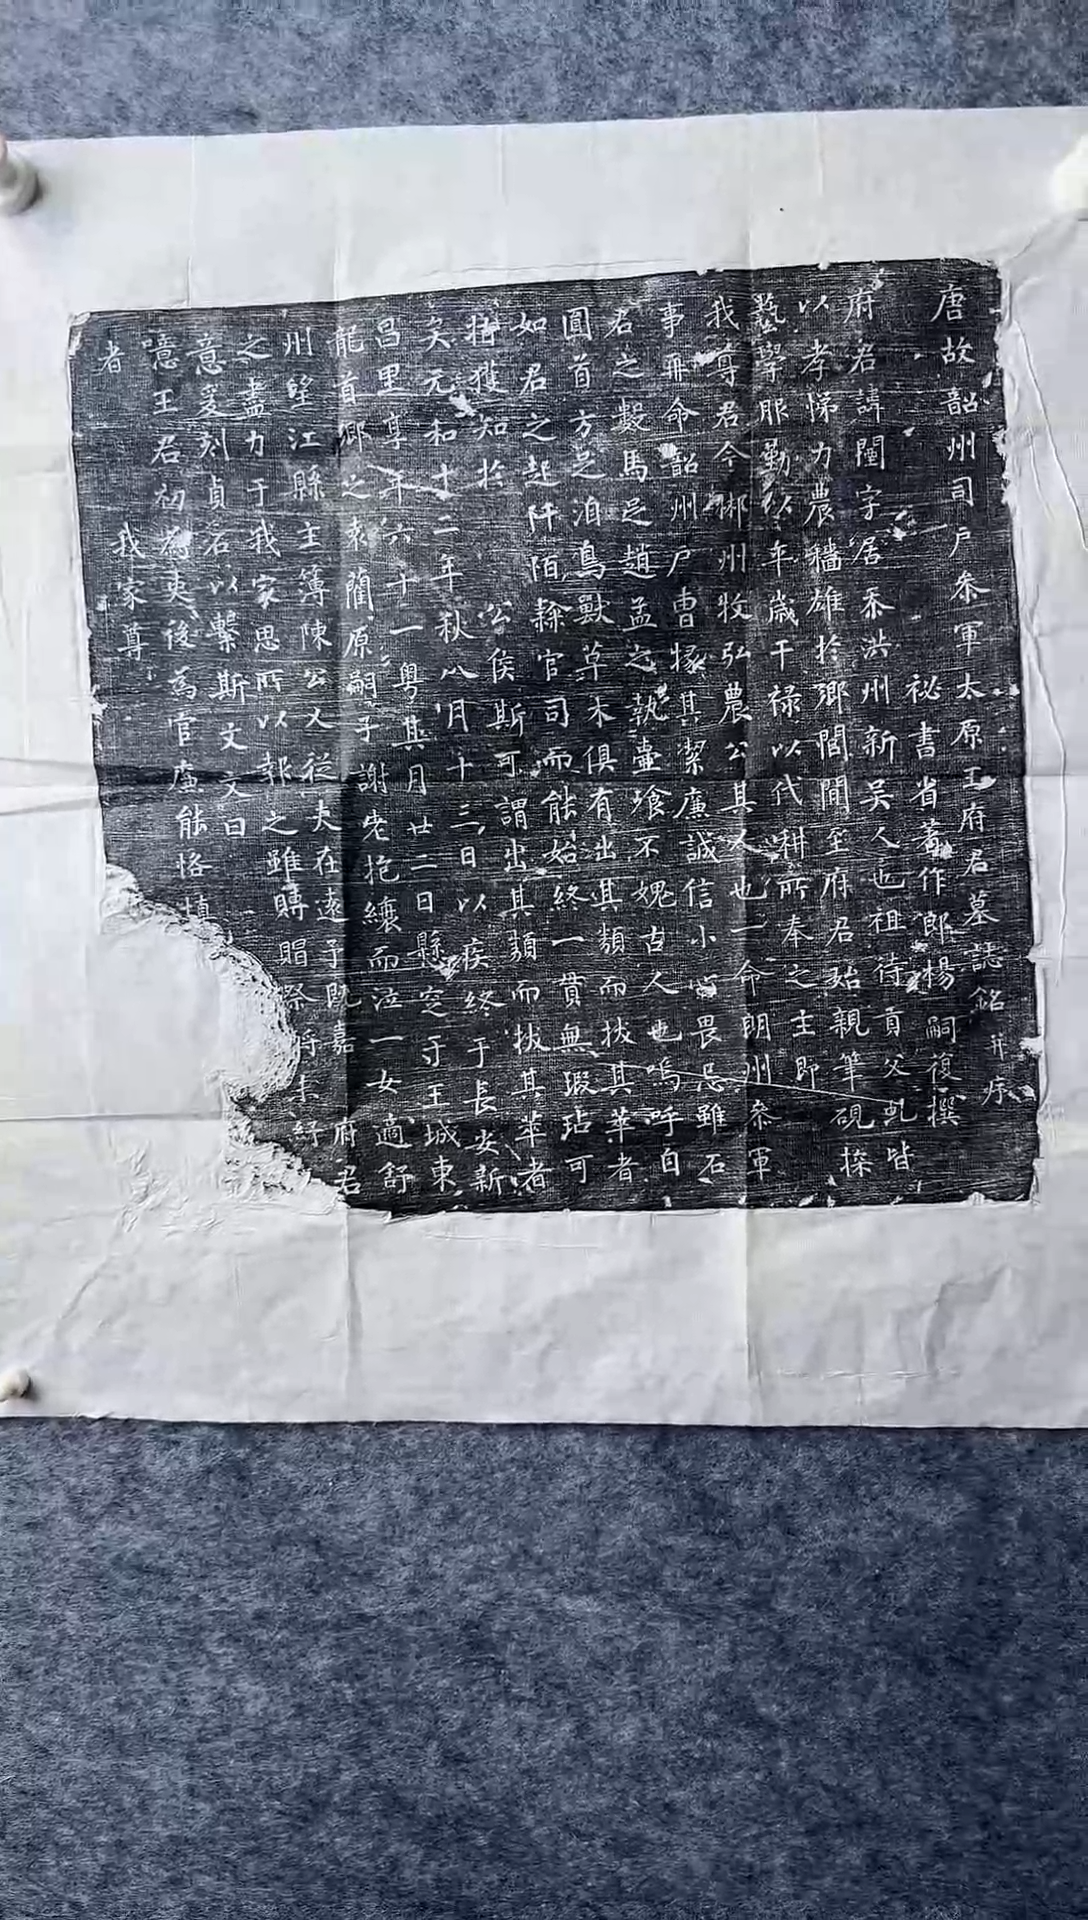 唐故韶州司戶叅軍太原王府君墓誌銘并序
祕書省著作郎楊嗣復撰
府君諱閏字居泰洪州新吳人也祖待貢父虬皆
以孝悌力農穡雄於鄉閭間至府君始親筆硯採
藝學服勤以年歲干祿以代耕所奉之主即
我尊君今郴州牧弘農公其人也一命明州叅軍
事再命韶州戶曹掾其潔廉誠信小心畏忌雖石
君之數馬足趙孟之執壷飡不媿古人也嗚呼自
圓首方足洎鳥獸草木俱有出其類而拔其萃者
如君之起阡陌隸官司而能始終一貫無瑕玷可
獲知於公侯斯可謂出其類而拔其萃者
矣元和十二年秋八月十三日以疾終于長安新
昌里享年六十一粵其月廿二日縣窆于王城東
龍首鄉之袁藺原嗣子謝老抱縗而泣一女適舒
州望江縣主簿陳公乂從夫在遠予旣嘉府君
之盡力于我家思所以報之雖賻賵祭將未紓
意爰刻貞石以繫斯文文曰
噫王君初為吏後為官廉能恪慎
者我家尊